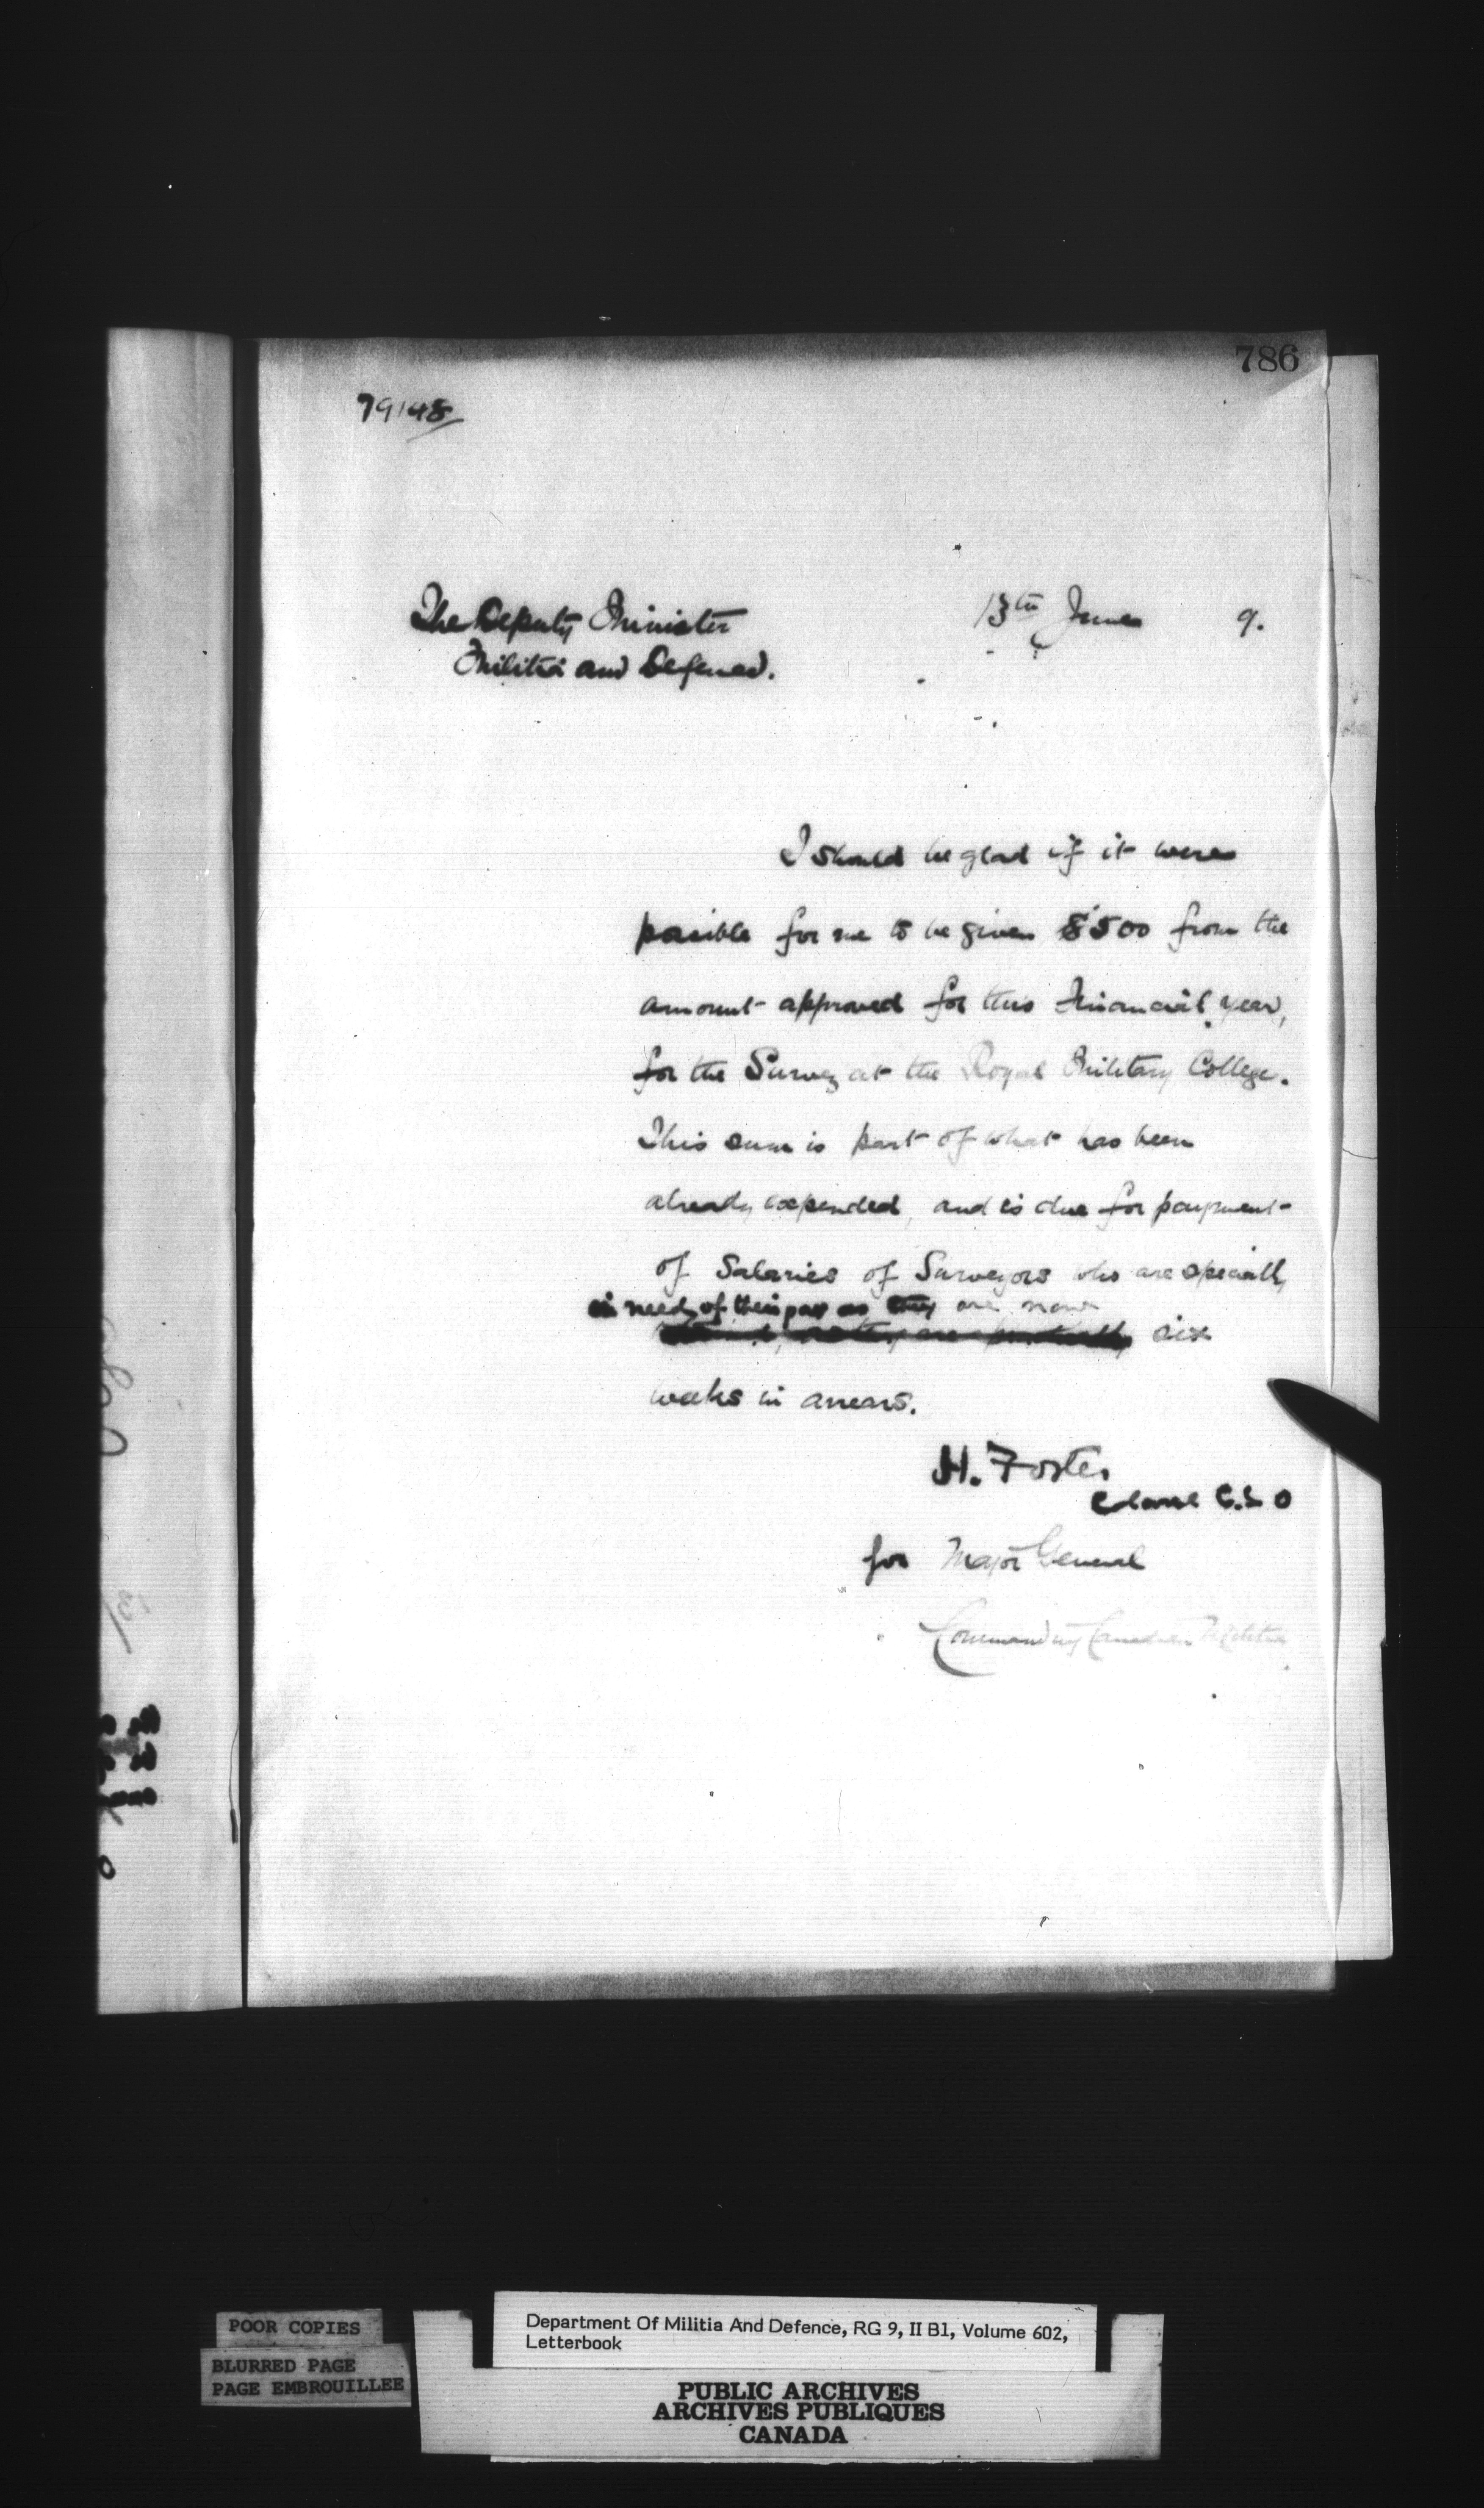 786
79148
The Deputy Minister
Militia and Defence.
13th June 9.
I should be glad if it were
possible for me to be given $500 from the
amount approved for this Financial year,
for the Survey at the Royal Military College.
This sum is part of what has been
already expended, and is due for payment
of Salaries of Surveyors who are specially
in need of their pay as they are now
six
weeks in arrears.
H. Foster
Colonel C.S.O
for Major General
Commanding Canadian Militia
POOR COPIES
BLURRED PAGE
PAGE EMBROUILLEE
Department Of Militia And Defence, RG 9, II B1, Volume 602,
Letterbook
PUBLIC ARCHIVES
ARCHIVES PUBLIQUES
CANADA